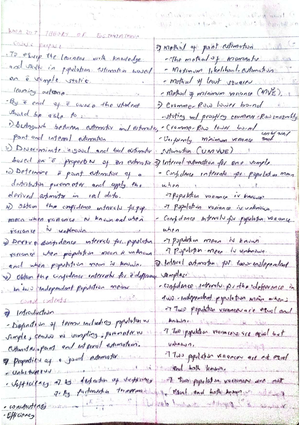 THEORY OF ESTIMATION
To equip the learner with knowledge
and skills in population estimation based
on a sample
learning outcome.
By the end of the course the student
should be able to:
i) Distinguish between estimator and estimate,
point and interval estimation
ii) Determine a good and bad estimator
based on the properties of an estimator
iii) Determine a point estimator of a
distribution parameter and apply the
derived estimator in real data.
iv) Obtain the confidence intervals for pop.
mean when variance is known and when
variance is unknown.
v) Derive confidence intervals for population
variance when population mean is unknown
and when population mean is known.
vi) Obtain the confidence intervals for difference
in two independent population mean
1) Introduction
- Definition of terms including population,
sample, census vs sampling, parameter,
point and interval estimation.
2) Properties of a good estimator
- Unbiasedness
- Sufficiency by definition of sufficiency
by factorization theorem
- consistency
- Efficiency
3) Method of point estimation
- The method of moments
- Maximum likelihood estimation
- Method of least squares
- Method of minimum variance (MVE).
4) Crammer-Rao lower bound
- stating and proofing crammer-Rao inequality
- Crammer-Rao lower bound
- Uniformly minimum variance unbiased
Estimation (UMVUE)
5) Interval estimation for one sample
- Confidence intervals for population mean
when
→ Population variance is known
→ Population variance is unknown.
- Confidence intervals for population variance
when
→ Population mean is known
→ Population mean is unknown
6) Interval estimation for two independent
samples:
- Confidence intervals for the difference in
two independent population mean when:
→ Two population variances are equal and
known.
→ Two population variances are equal but
unknown.
→ Two population variances are not equal
but both known.
→ Two population variances are not
equal and both